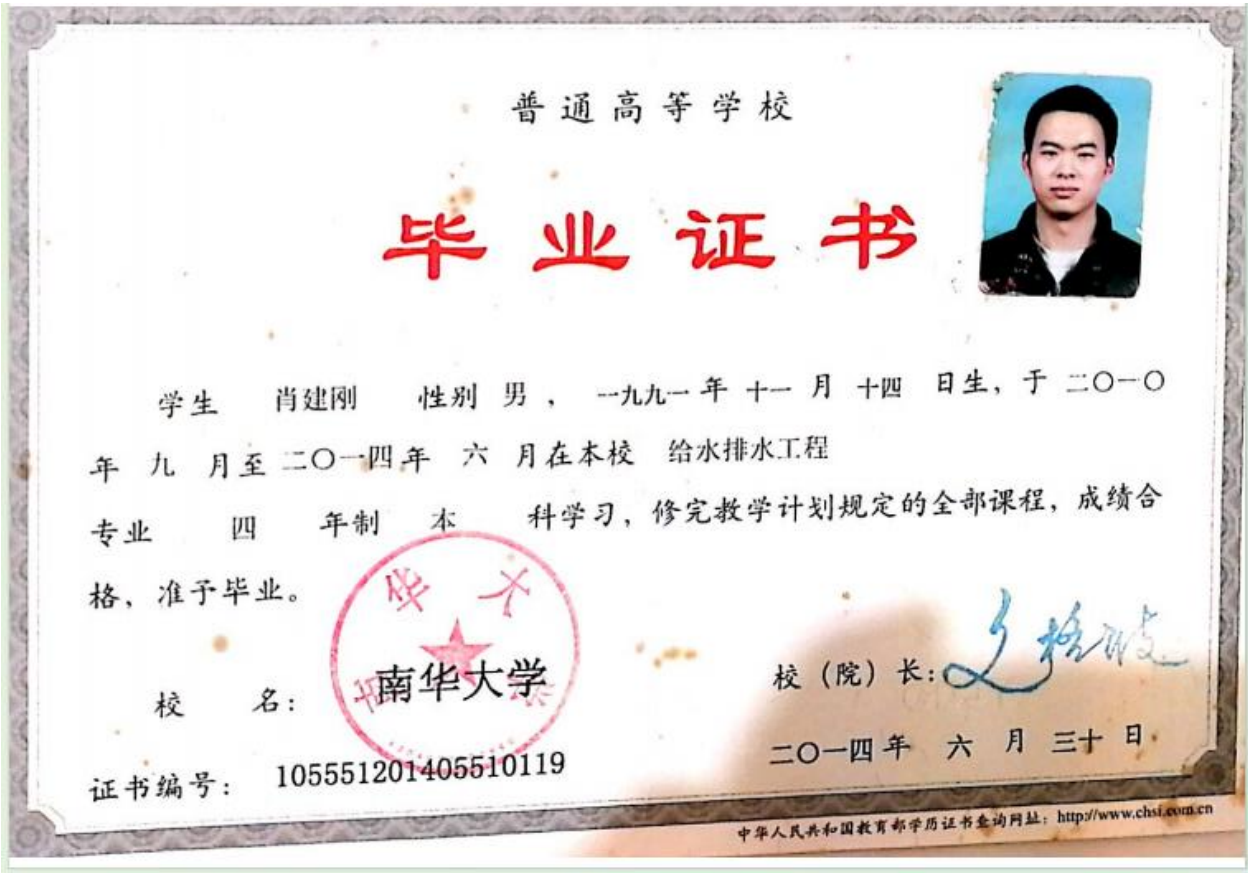 普通高等学校
毕业证书
学生 肖建刚 性别 男 ， 一九九一 年 十一 月 十四 日生，于 二〇一〇
年 九 月至 二〇一四 年 六 月在本校 给水排水工程
专业 四 年制 本 科学习，修完教学计划规定的全部课程，成绩合
格，准予毕业。
南华大学
校 名： 南华大学
校（院）长：
二〇一四 年 六 月 三十 日
证书编号： 105551201405510119
中华人民共和国教育部学历证书查询网址：http://www.chsi.com.cn